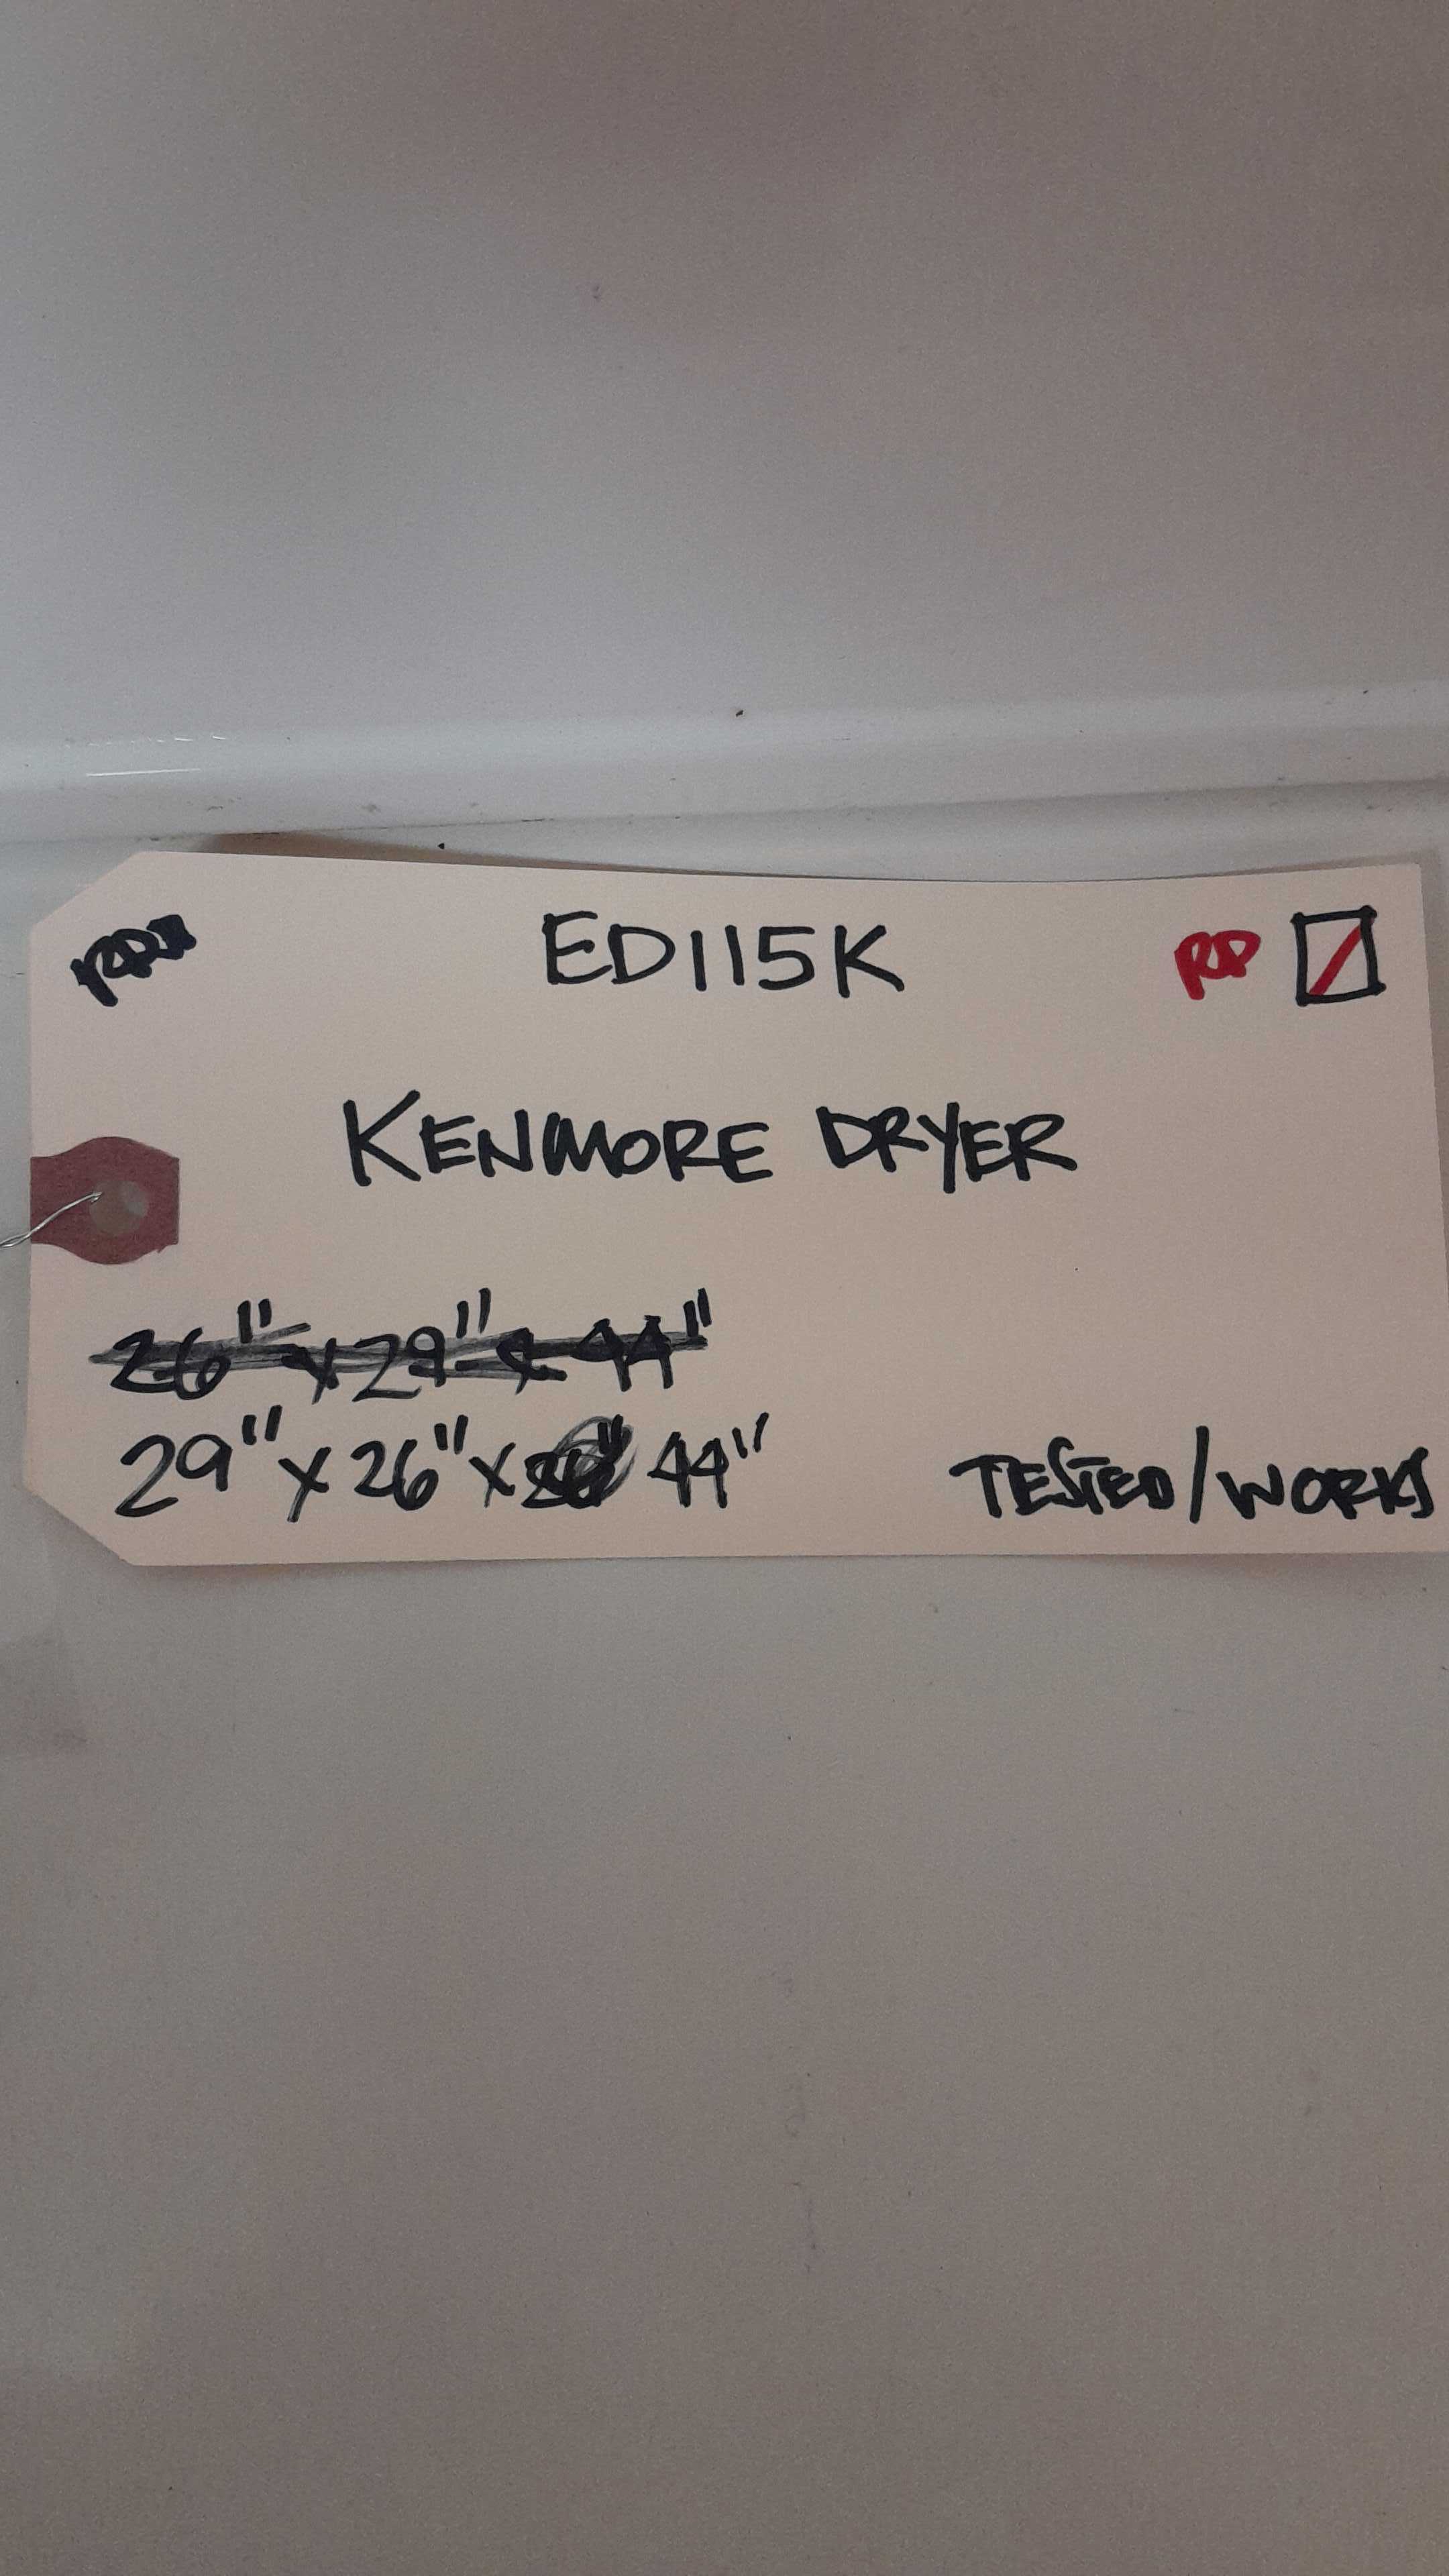 ED115K RP
KENMORE DRYER
26" x 29" x 44"
29" x 26" x 44"
TESTED/WORKS